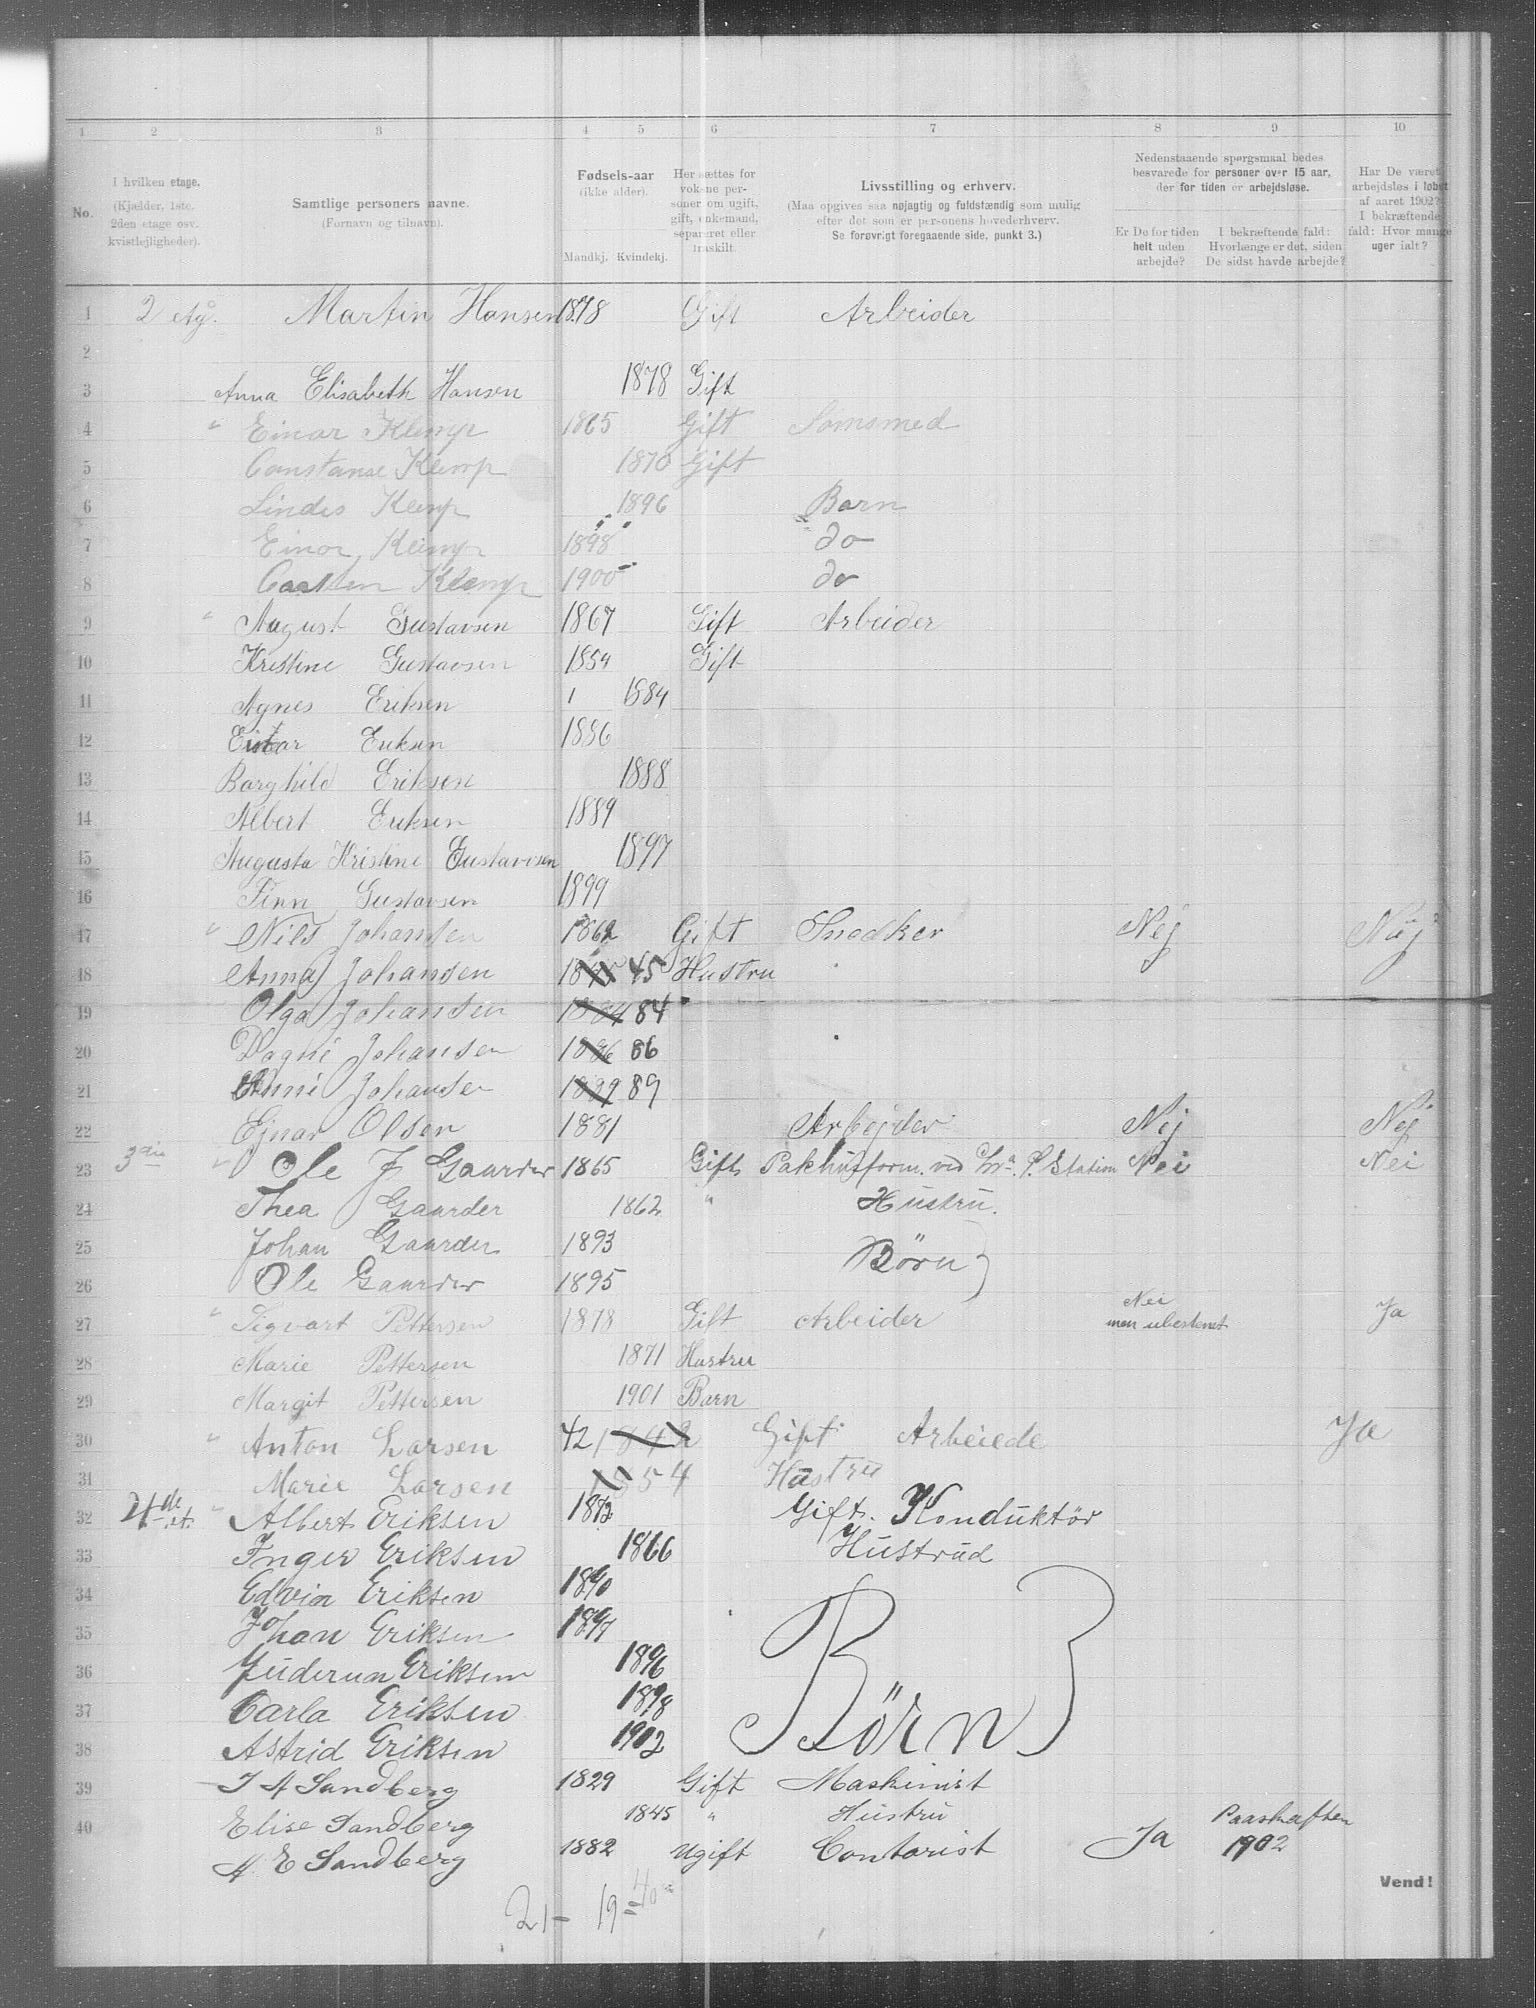 1 2 3 4 5 6 7 8 9 10
No.
I hvilken etage. (Kjælder, 1ste, 2den etage osv. kvistlejligheder).
Samtlige personers navne. (Fornavn og tilnavn).
Fødsels-aar (ikke alder). Mandkj. Kvindekj.
Her sættes for voksne personer om ugift, gift, enkemand, separeret eller fraskilt.
Livsstilling og erhverv. (Maa opgives saa nøjagtig og fuldstændig som mulig efter det som er personens hovederhverv. Se forøvrigt foregaaende side, punkt 3.)
Nedenstaaende spørgsmaal bedes besvarede for personer over 15 aar, der for tiden er arbejdsløse.
Er De for tiden helt uden arbejde?
I bekræftende fald: Hvorlænge er det, siden De sidst havde arbejde?
Har De været arbejdsløs i løbet af aaret 1902? I bekræftende fald: Hvor mange uger ialt?
1 2 Martin Hansen 1878 Gift Arbeider
2
3 Anna Elisabeth Hansen 1878 Gift
4 " Einar Klemp 1865 Gift
5 Constanse Klemp 1870 Gift
6 Lindis Klemp 1896 Barn
7 Einar Klemp 1898 do
8 Carsten Klemp 1900 do
9 " August Gustavsen 1867 Gift Arbeider
10 Kristine Gustavsen 1854 Gift
11 Agnes Eriksen 1 1884
12 Eriksen 1886
13 Borghild Eriksen 1888
14 Albert Eriksen 1889
15 Augusta Kristine Gustavsen 1897
16 Finn Gustavsen 1899
17 " Nils Johansen 1862 Gift Snedker Nej Nej
18 Anna Johansen 45 Hustru
19 Olga Johansen 84
20 Dagni Johansen 1886 86
21 Johansen 89
22 Ejnar Olsen 1881 Arbejder Nej Nej
23 3die " Ole J Gaarder 1865 Gift Pakhusform. ved Station Nei Nei
24 Thea Gaarder 1862 " Hustru.
25 Johan Gaarder 1893 Børn
26 Ole Gaarder 1895
27 " Sigvart Pettersen 1878 Gift Arbeider Nei men ubestemt Ja
28 Marie Pettersen 1871 Hustru
29 Margit Pettersen 1901 Barn
30 " Anton Larsen 42 1842 Gift Arbeiede Ja
31 Marie Larsen 1854 Hustru
32 4de et. " Albert Eriksen 1872 Gift. Konduktör
33 Inger Eriksen 1866 Hustrud
34 Edvin Eriksen 1890
35 Johan Eriksen 1897
36 Guderun Eriksen 1896 Börn
37 Carla Eriksen 1898
38 Astrid Eriksen 1902
39 J A Sandberg 1829 Gift Maskinist
40 Elise Sandberg 1845 " Hustru
A. E Sandberg 1882 Ugift Contorist Ja Paaskaften 1902
Vend!
21 - 19 = 40